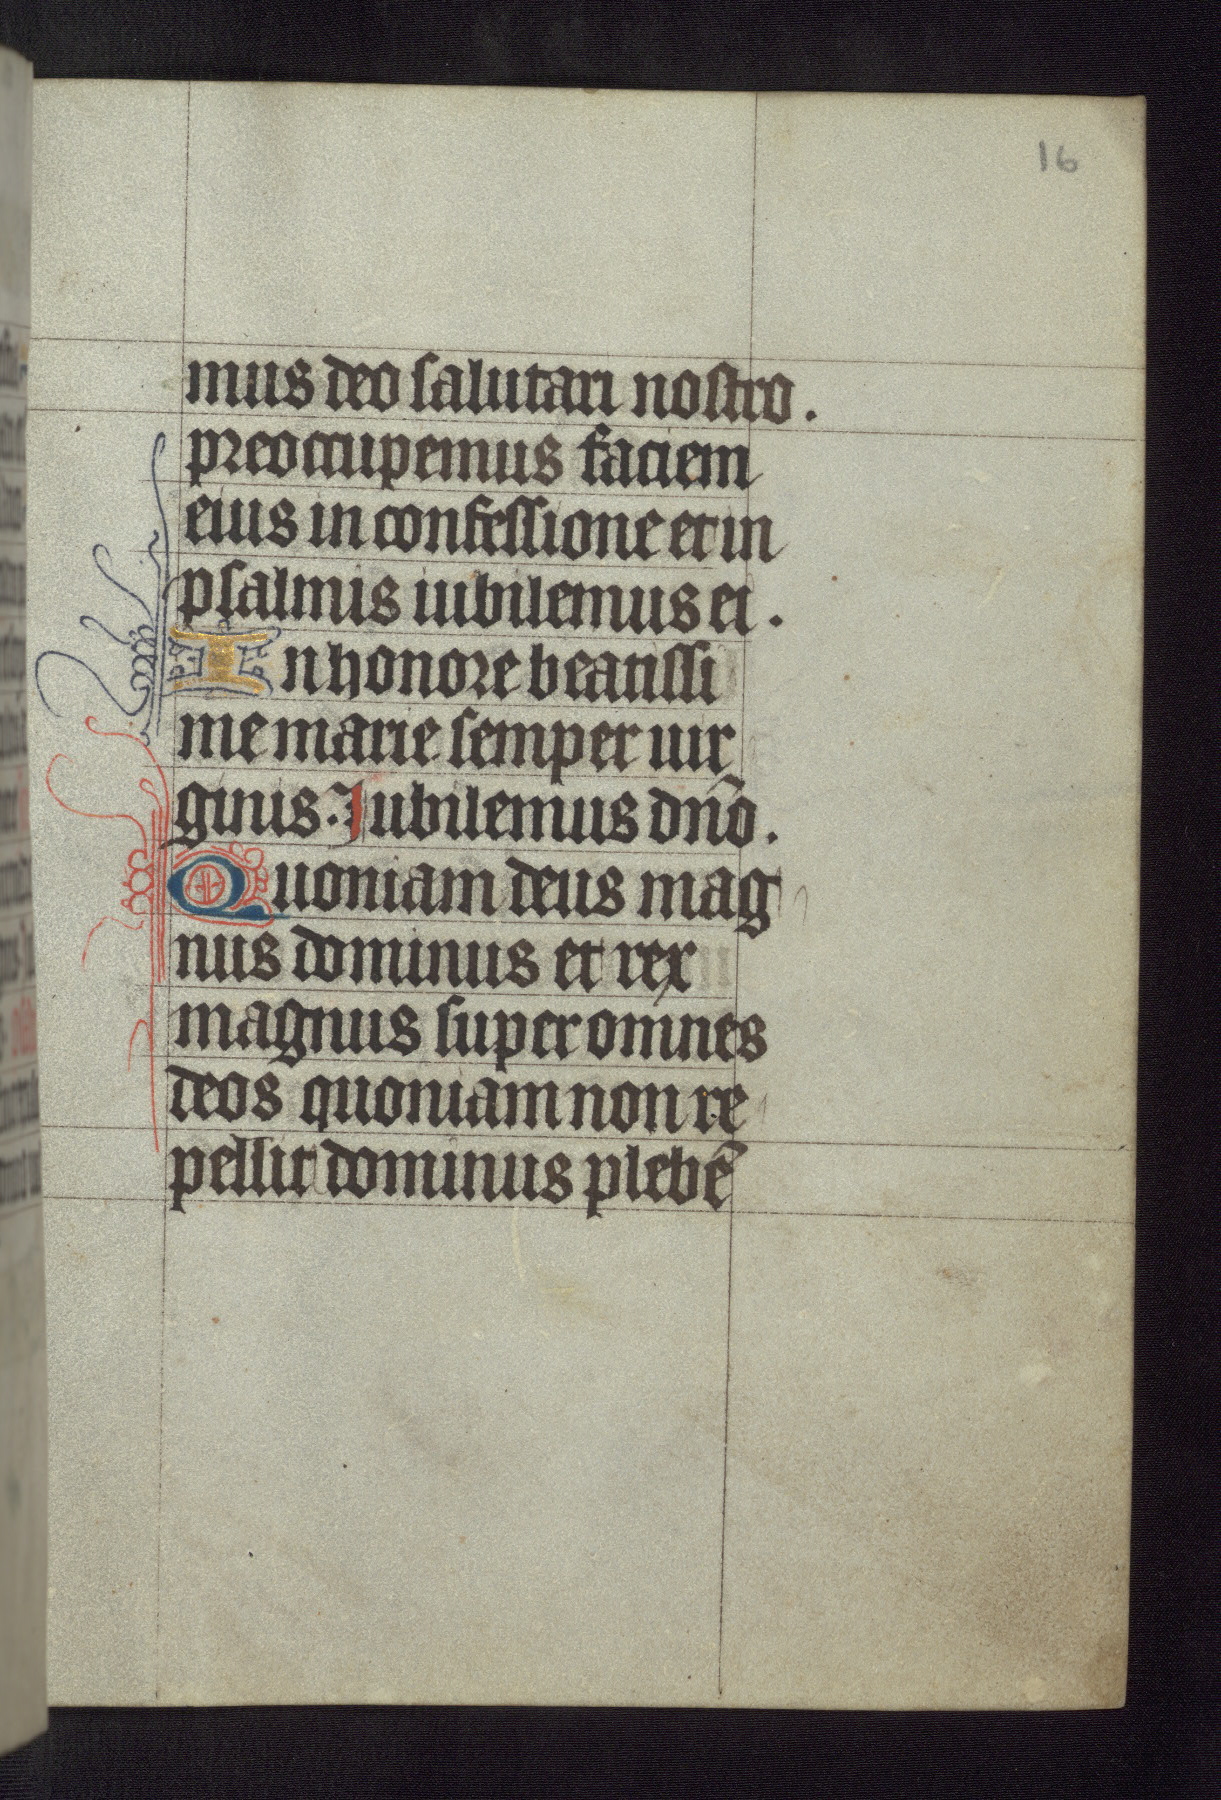 16
mus deo salutari nostro.
preoccupemus faciem
eius in confessione et in
psalmis iubilemus ei.
In honore beatissi
me marie semper uir
ginis. Iubilemus dn̄o.
Quoniam deus mag
nus dominus et rex
magnus super omnes
deos quoniam non re
pellit dominus plebē